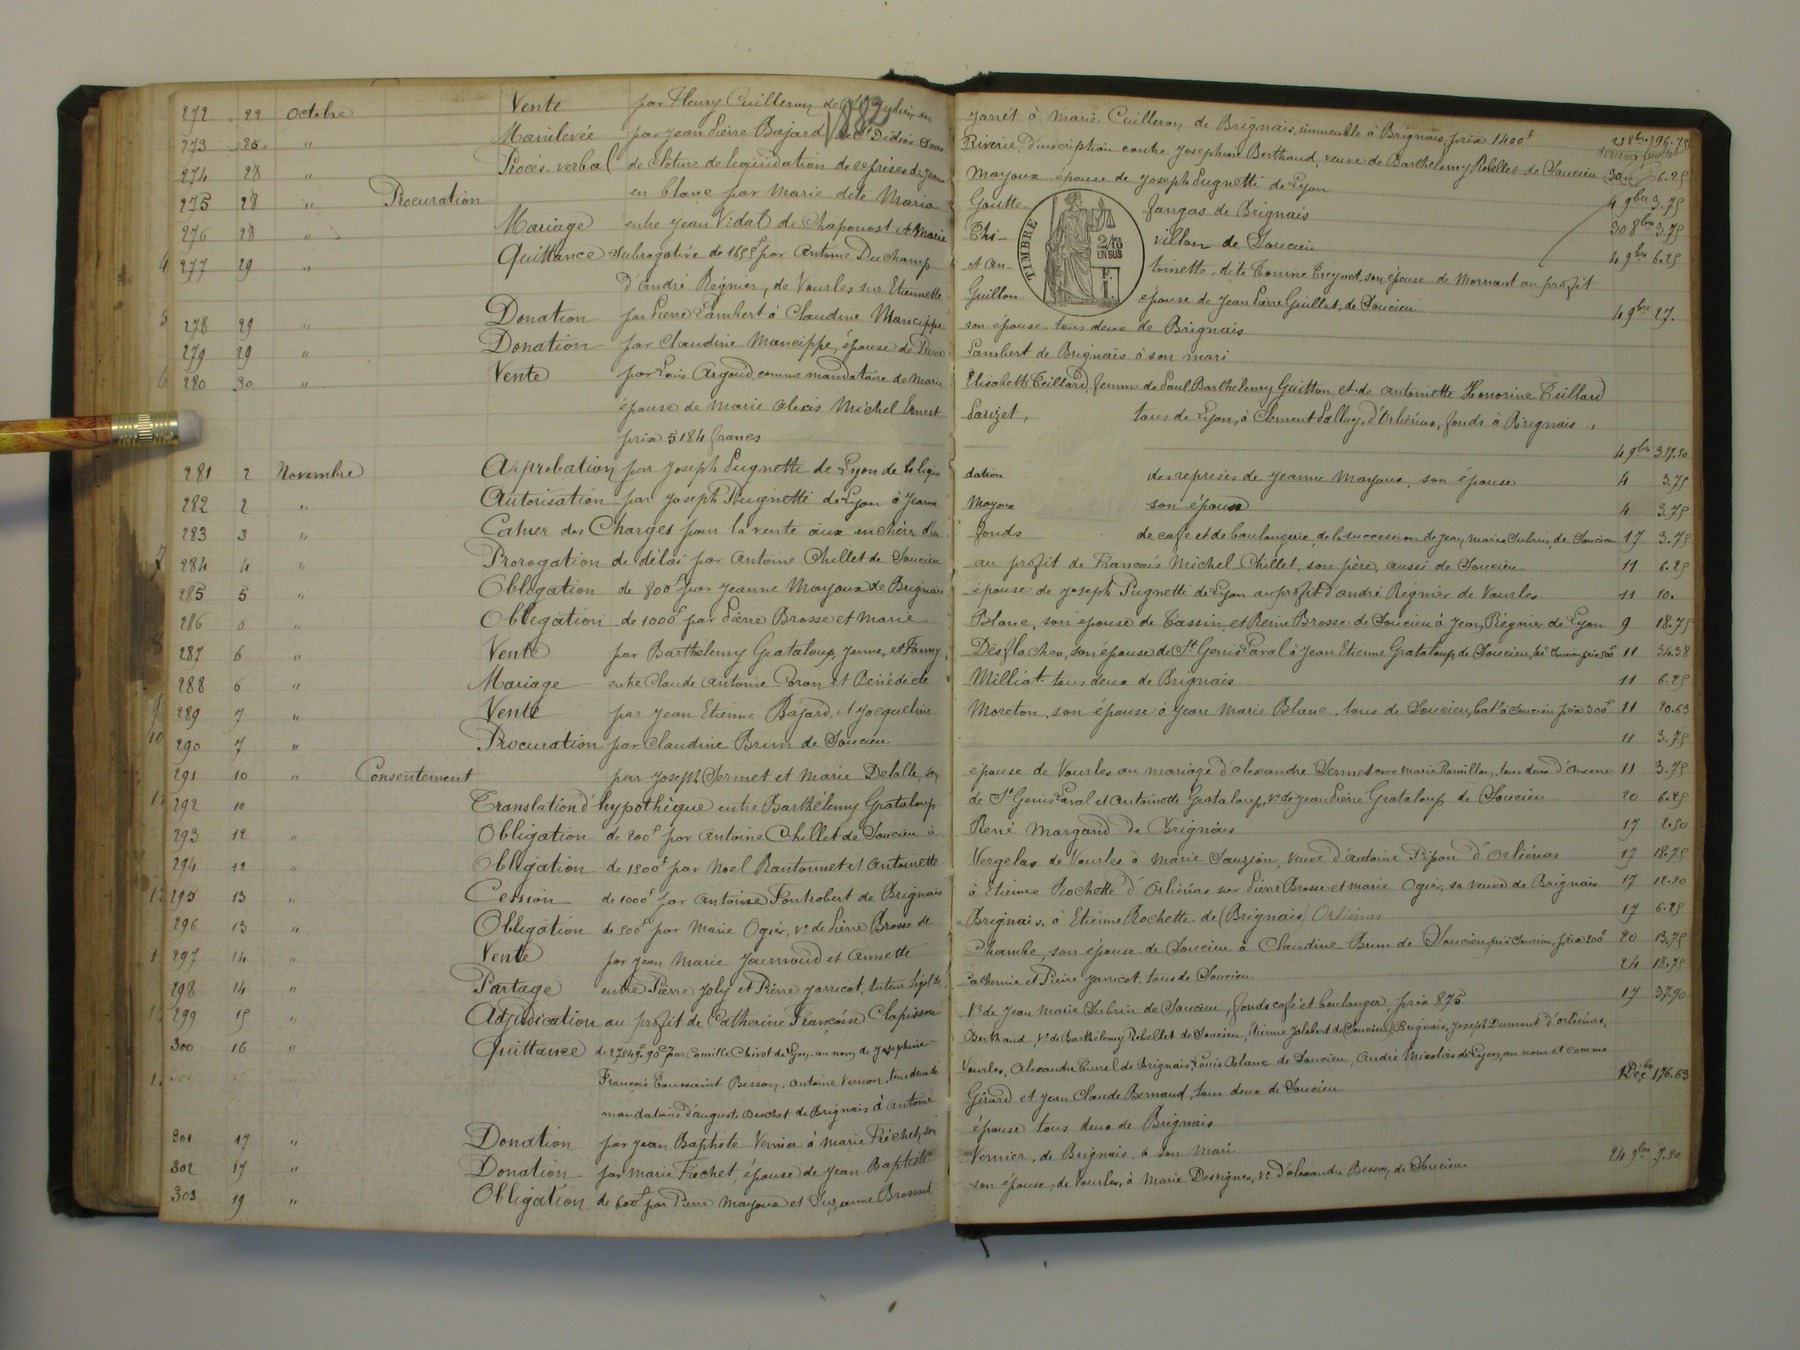 1882
272 22 Octobre Vente par Fleury Cuilleron de St Julien en Jarret à Marie Cuilleron de Brignais, immeuble à Brignais, prix 1400f
273 25 " Mainlevée par Jean Pierre Bajard de St Didier sous Riverie, d'inscription contre Josephine Berthaud, veuve de Barthélemy Robellet de Soucieu
274 28 " Procès-verbal de cloture de liquidation de reprises de Jeanne Mayoux épouse de Joseph Pugnetti de Lyon 6.25
275 28 " Procuration en blanc par Marie dite Maria Goutte Jangas de Brignais 4 9bre 3.75
276 28 " Mariage entre Jean Vidal de Chaponost et Marie Thivillon de Soucieu 30 8bre 3.75
277 29 " Quittance subrogative de 1655f par Antoine Duchamp et Antoinette, dite Tomine Treynet, son épouse de Mornant au profit 4 9bre 6.25
d'André Régnier, de Vourles sur Etiennette Guillon épouse de Jean Pierre Guillet, de Soucieu
TIMBRE 2/10 EN SUS 1 F.
278 29 " Donation par Pierre Lambert à Claudine Mancippe son épouse tous deux de Brignais 4 9bre 27.
279 29 " Donation par Claudine Mancippe, épouse de Pierre Lambert de Brignais à son mari
280 30 " Vente par Louis Argoud, comme mandataire de Marie Elisabeth Teillard, femme de Paul Barthélemy Guitton, et de Antoinette Honorine Teillard
épouse de Marie Alexis Michel Ernest Parizet, tous de Lyon, à Clement Palluy, d'Orliénas, fonds à Brignais,
prix 5184 francs 4 9bre 357.50
281 2 Novembre Approbation par Joseph Pugnetti de Lyon de la liquidation des reprises de Jeanne Mayoux, son épouse 4 3.75
282 2 " Autorisation par Joseph Pugnetti de Lyon à Jeanne Mayoux son épouse 4 3.75
283 3 " Cahier des Charges pour la vente aux enchères d'un fonds de café et de boulangerie, de la succession de Jean Marie Subrin, de Soucieu 17 3.75
284 4 " Prorogation de délai par Antoine Chillet de Soucieu au profit de François Michel Chillet, son père, aussi de Soucieu 11 6.25
285 5 " Obligation de 800f par Jeanne Mayoux de Brignais épouse de Joseph Pugnetti de Lyon au profit d'André Régnier de Vourles 11 10.
286 6 " Obligation de 1000f par Pierre Brosse et Marie Blanc, son épouse de Tassin, et Reine Brosse de Soucieu à Jean Régnier de Lyon 9 18.75
287 6 " Vente par Barthélemy Grataloup, jeune, et Fanny Desflaches, son épouse de St Genis Laval à Jean Etienne Grataloup de Soucieu, 11 34.38
288 6 " Mariage entre Claude Antoine Poron et Bénédicte Milliat tous deux de Brignais 11 6.25
289 7 " Vente par Jean Etienne Bajard et Jacqueline Moreton, son épouse à Jean Marie Blanc, tous de Soucieu, bat. à Soucieu prix 300f 11 20.63
290 7 " Procuration par Claudine Brun de Soucieu 11 3.75
291 10 " Consentement par Joseph Sermet et Marie Delalle, son épouse de Vourles au mariage d'Alexandre Sermet avec Marie Rouillon, tous deux d' 11 3.75
292 10 Translation d'hypothèque entre Barthélemy Grataloup de St Genis Laval et Antoinette Grataloup, Ve de Jean Pierre Grataloup de Soucieu 20 6.25
293 12 " Obligation de 200f par Antoine Chillet de Soucieu à René Margand de Brignais 17 2.50
294 12 " Obligation de 1500f par Noel Rantonnet et Antoinette Vergelas de Vourles à Marie Sauzion, veuve d'Antoine Pipon d'Orliénas 17 18.75
295 13 " Cession de 1000f par Antoine Fontrobert de Brignais à Etienne Rochette d'Orliénas sur Pierre Brosse et Marie Ogier, sa veuve de Brignais 17 12.50
296 13 " Obligation de 500f par Marie Ogier, Ve de Pierre Brosse de Brignais, à Etienne Rochette de (Brignais) Orliénas 17 6.25
297 14 " Vente par Jean Marie Journoud et Annette Chambe, son épouse de Soucieu à Claudine Brun de Soucieu, prix 200f 20 13.75
298 14 " Partage entre Pierre Joly et Pierre Jarricot, tuteur légal de Catherine et Pierre Jarricot tous de Soucieu 24 18.75
299 15 " Adjudication au profit de Catherine Françoise Clapisson Ve de Jean Marie Subrin de Soucieu, fonds café et boulanger, prix 875 17 37.90
300 16 " Quittance de par Camille Chirat de Lyon au nom de Josephine Berthaud, Ve de Barthélemy Robellet de Soucieu, Etienne Jalabert de (Soucieu) Brignais, Joseph Dumont d'Orliénas,
François Toussaint Besson, Antoine Vernon, tous deux de Vourles, Alexandre Curel de Brignais, Louis Blanc de Soucieu, André de Lyon, au nom et comme
mandataire d'Auguste Deschet de Brignais à Antoine Girard et Jean Claude Bernaud, tous deux de Soucieu 176.63
301 17 " Donation par Jean Baptiste Vernier à Marie Fréchet, son épouse tous deux de Brignais
302 17 " Donation par Marie Fréchet, épouse de Jean Baptiste Vernier, de Brignais, à son mari
303 19 " Obligation de 600f par Pierre Mayoux et Suzanne Brossard son épouse, de Vourles, à Marie Desvignes, Ve d'Alexandre Besson, de Soucieu 24 9bre 7.50